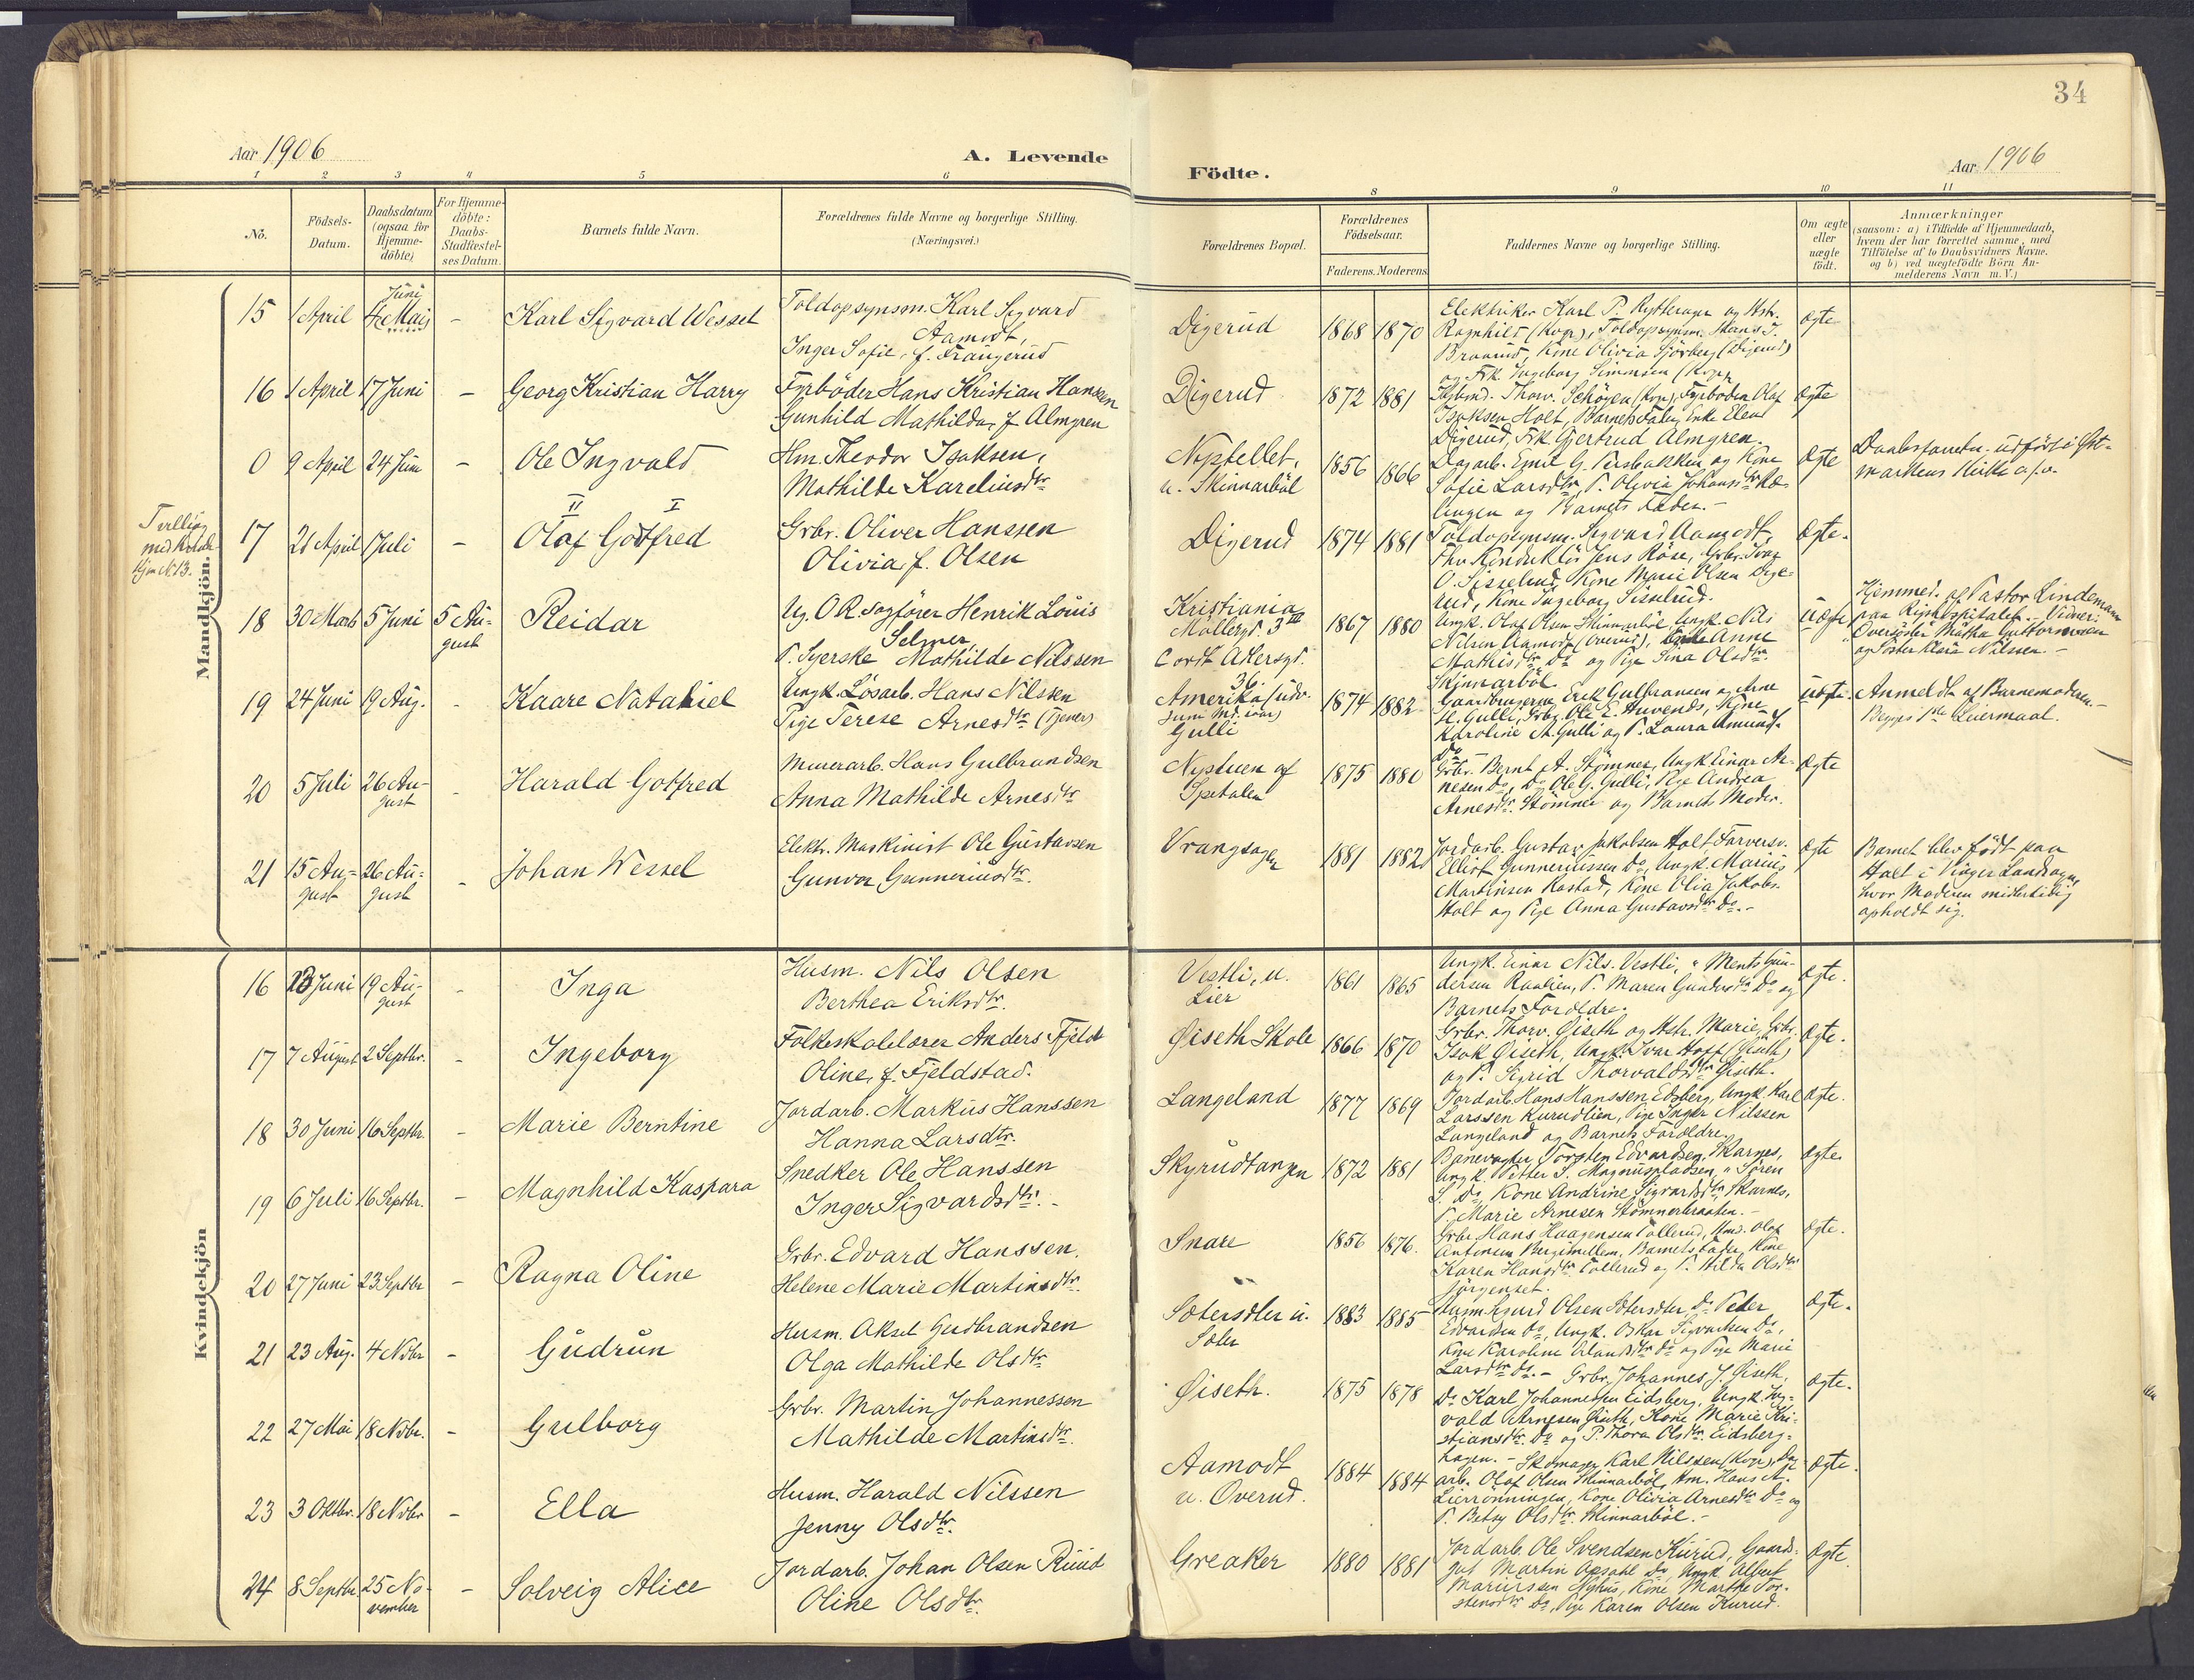 34
Aar 1906
A. Levende
Födte.
Aar 1906
1 2 3 4 5 6 8 9 10 11
No.
Födsels-
Datum.
Daabsdatum
(ogsaa for
Hjemme-
döbte)
For Hjemme-
döbte:
Daabs-
Stadfæstel-
ses Datum.
Barnets fulde Navn.
Forældrenes fulde Navne og borgerlige Stilling.
(Næringsvei.)
Forældrenes Bopæl.
Forældrenes
Födselsaar.
Faderens. Moderens
Faddernes Navne og borgerlige Stilling.
Om ægte
eller
uægte
födt.
Anmærkninger
(saasom: a) i Tilfælde af Hjemmedaab,
hvem der har forrettet samme, med
Tilföielse af to Daabsvidners Navne.
og b) ved uægtefödte Börn An-
melderens Navn m. V.)
Mandkjön.
15 1 April 4 Mai Juni - Karl Sigvard Wessel
Toldopsynsm. Karl Sigvard
Aamodt,
Inger Sofie, f. Frangerud
Digerud 1868 1870
Elektriker Karl P. Rytterager og Hstr.
Ragnhild (Kvgr), Toldopsynsm. Hans J.
Braarud, Kone Olivia Sjörberg (Digerud)
og Frk. Ingeborg Simonsen (Kvgr)
ægte
16 1 April 17 Juni - Georg Kristian Harry
Fyrböder Hans Kristian Hanssen
Gunhild Mathilda, f. Almgren
Digerud 1872 1881
Thorv. Schöyen (Kvgr), Fyrböder Olaf
Isaksen Holt, Barnets Fader, Enke Elene
Digerud, Frk. Gjertrud Almgren.
ægte
0 9 April 24 Juni - Ole Ingvald
Hm. Theodor Isaksen,
Mathilde Kareliusdtr
Nystellet,
u. Skinnarböl
1856 1866
Dagarb. Emil G. Persbakken og Kone
Sofie Larsdtr, P. Olivia Johansdtr
og Barnets Fader.-
ægte
Daabsforretn. udfört i Öst-
markens Kirke
Tvilling
med
17 21 April 1 Juli - Olaf Godtfred
II I
Grbr. Oliver Hanssen
Olivia, f. Olsen
Digerud 1874 1881
Toldopsynsm. Sigvard Aamodt,
Konduktör Jens Röse, Grbr. Ivar
O. Sisselrud, Kone Marie Olsen Dige-
rud, Kone Ingeborg Sisselrud.
ægte.
18 30 Marts 5 Juni 5 Au-
gust
Reidar
Ug. O.R. sagförer Henrik Louis
Selmer,
P. Syerske Mathilde Nilssen
Kristiania
Möllergt. 3 III
Cordt Adlersgt.
36.
1867 1880
Ungk. Olaf Olsen Skinnarböl, Ungk. Nils
Nilsen Aamodt (Overud), Anne
Mathisdtr Do og Pige Sina Olsdtr.
Skinnarböl.
uægte
Hjemmed. af Pastor Lindemann
paa Rigshospitalet. Vidner:
Oversöster Mätha Guttormsen
og Söster Klara Nilssen.-
19 24 Juni 19 Aug. - Kaare Natahiel
Ungk. Lösarb. Hans Nilssen
Pige Terese Arnesdtr (Tjener)
Amerika (udv.
Juni Md. iaar)
Gulli
1874 1882
Gaardbrugerne Erik Gulbransen og Arne
H. Gulli, Grbr. Ole E. Huvends, Kone
Karoline A. Gulli og P. Laura Amunds.
Do
uægte.
Anmeldt af Barnemoderen.-
Begges 1ste Leiermaal.
20 5 Juli 26 Au-
gust
- Harald Gotfred
Murerarb. Hans Gulbrandsen
Anna Mathilde Arnesdtr
Nystuen af
Spetalen
1875 1880
Grbr. Bernt A. Stömner, Ungk Einar Ar-
nesen Do, Do Ole G. Gulli, Pige Andrea
Arnesdtr. Stömner og Barnets Moder.
ægte
21 15 Au-
gust
26 Au-
gust
- Johan Wessel
Elektr. Maskinist Ole Gustavsen
Gunvor Gunneriusdtr.
Vrangsager 1881 1882
Jordarb. Gustav Jakobsen Holt, Farversv.
Ellif Gunneriussen Do, Ungk. Marius
Martinsen Rastad, Kone Olia Jakobs.
Holt og Pige Anna Gustavsdtr Do.-
ægte
Barnet blev födt paa
Holt i Vinger Landsogn,
hvor Moderen midlertidig
opholdt sig.
Kvindekjön
16 13 Juni 19 Au-
gust
- Inga
Husm. Nils Olsen
Berthea Eriksdtr.
Vestli, u.
Lier
1861 1865
Ungk. Einar Nils. Vestli, " Ments Gun-
dersen Raalien, P. Maren Gundersdtr Do og
Barnets Forældre.
ægte.
17 7 August 2 Septbr. - Ingeborg
Folkeskolelærer Anders Fjeld
Oline, f. Fjeldstad.
Öiseth Skole 1866 1870
Grbr. Thorv. Öiseth og Hstr. Marie, Grbr.
Isak Öiseth, Ungk. Ivar Hoff (Öiseth)
og P. Sigrid Thorvaldsdtr Öiseth.
ægte.
18 30 Juni 16 Septbr. - Marie Berntine
Jordarb. Markus Hanssen
Hanna Larsdtr.
Langeland 1877 1869
Jordarb. Hans Hanssen Edsberg, Ungk. Karl
Larssen Kurudlien, Pige Inger Nilssen
Langeland og Barnets Forældre.
ægte.
19 6 Juli 16 Septbr. - Magnhild Kaspara
Snedker Ole Hanssen
Inger Sigvardsdtr. -
Skyrudtangen 1872 1881
Banevogter Torsten Edvardsen, Skarnes,
Ungk. Petter S. Magnuspladsen, " Sören
S. Do, Kone Andrine Sigvardsdtr Skarnes,
P. Marie Arnesen Stömnerbraaten.-
ægte.
20 27 Juni 23 Septbr - Ragna Oline
Grbr. Edvard Hanssen.
Helene Marie Martinsdtr.
Snare 1856 1876.
Grbr Hans Haagensen Tollerud, Hmd. Olaf
Antonsen Bergsmellem, Barnets Fader, Kone
Karen Hansdtr Tollerud og P. Hilda Olsdtr
Jörgenset.
ægte.
21 23 Aug. 4 Nvbr - Gudrun
Husm. Aksel Gudbrandsen
Olga Mathilde Olsdtr
Sætersdler u.
Sæter
1883 1885
Husm. Sjurd Olsen Sætersdler, Do Peder
Edvardsen Do, Ungk. Oskar Sigvartsen Do,
Kone Karoline Erlandsdtr Do og Pige Marie
Larsdtr Do.-
ægte.
22 27 Mai 18 Nvbr. - Gulborg
Grbr. Martin Johannessen
Mathilde Martinsdtr.
Öiseth. 1875 1878
Grbr. Johannes J. Öiseth,
Do Karl Johannessen Eidsberg, Ungk. Ing-
vald Arnesen Öiseth, Kone Marie Kri-
stiansdtr. Do og P. Thora Olsdtr. Eidsberg-
hagen.-
ægte.
23 3 Oktbr. 18 Nvbr - Ella
Husm. Harald Nilssen
Jenny Olsdtr.
Aamodt
u. Overud.
1884 1884
Skomager Karl Nilssen (Kvgr), Dag-
arb. Olaf Olsen Skinnarböl, Hm. Hans A.
Lierrönningen, Kone Olivia Arnesdtr Do og
P. Betsy Olsdtr. Skinnarböl.-
ægte.
24 8 Septbr. 25 No-
vember
- Solveig Alice
Jordarb. Johan Olsen Ruud
Oline Olsdtr.
Greaker 1880 1881
Jordarb. Ole Svendsen Kurud, Gaards-
gut Martin Opsahl Do, Ungk Albert
Mariussen Nyhus, Kone Marthe Tor-
stensdtr Do, Pige Karen Olsen Kurud.
ægte.